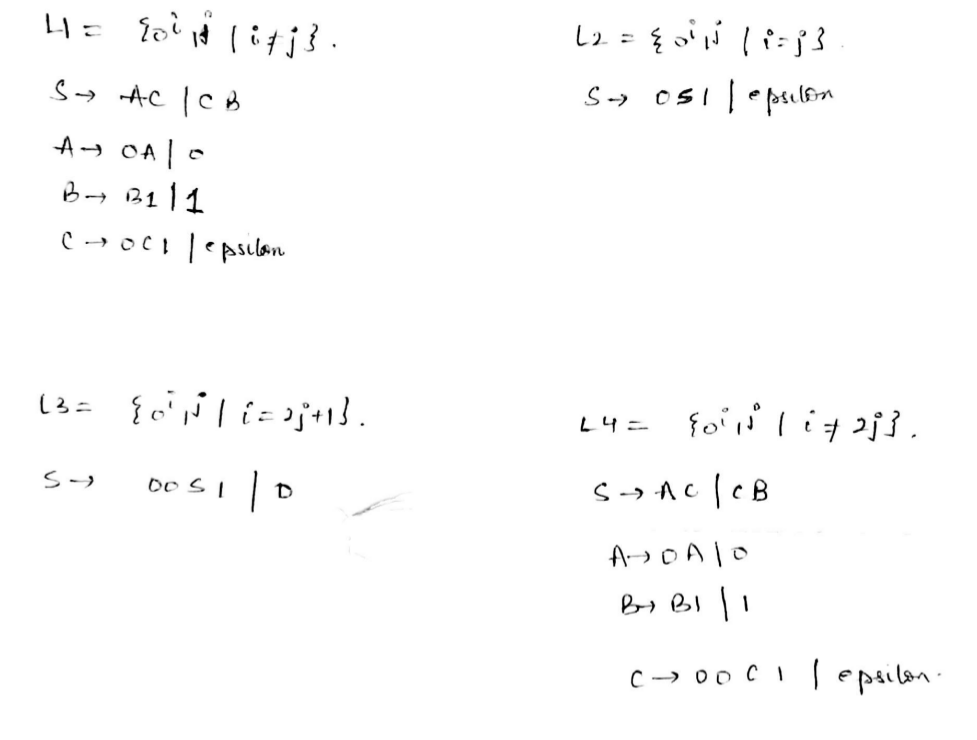 L1 = {0^i 1^j | i≠j}.
S → AC | CB
A → 0A | 0
B → B1 | 1
C → 0C1 | epsilon
L2 = {0^i 1^j | i=j}
S → 0S1 | epsilon
L3 = {0^i 1^j | i=2j+1}.
S → 00S1 | 0
L4 = {0^i 1^j | i≠2j}.
S → AC | CB
A → 0A | 0
B → B1 | 1
C → 00C1 | epsilon.